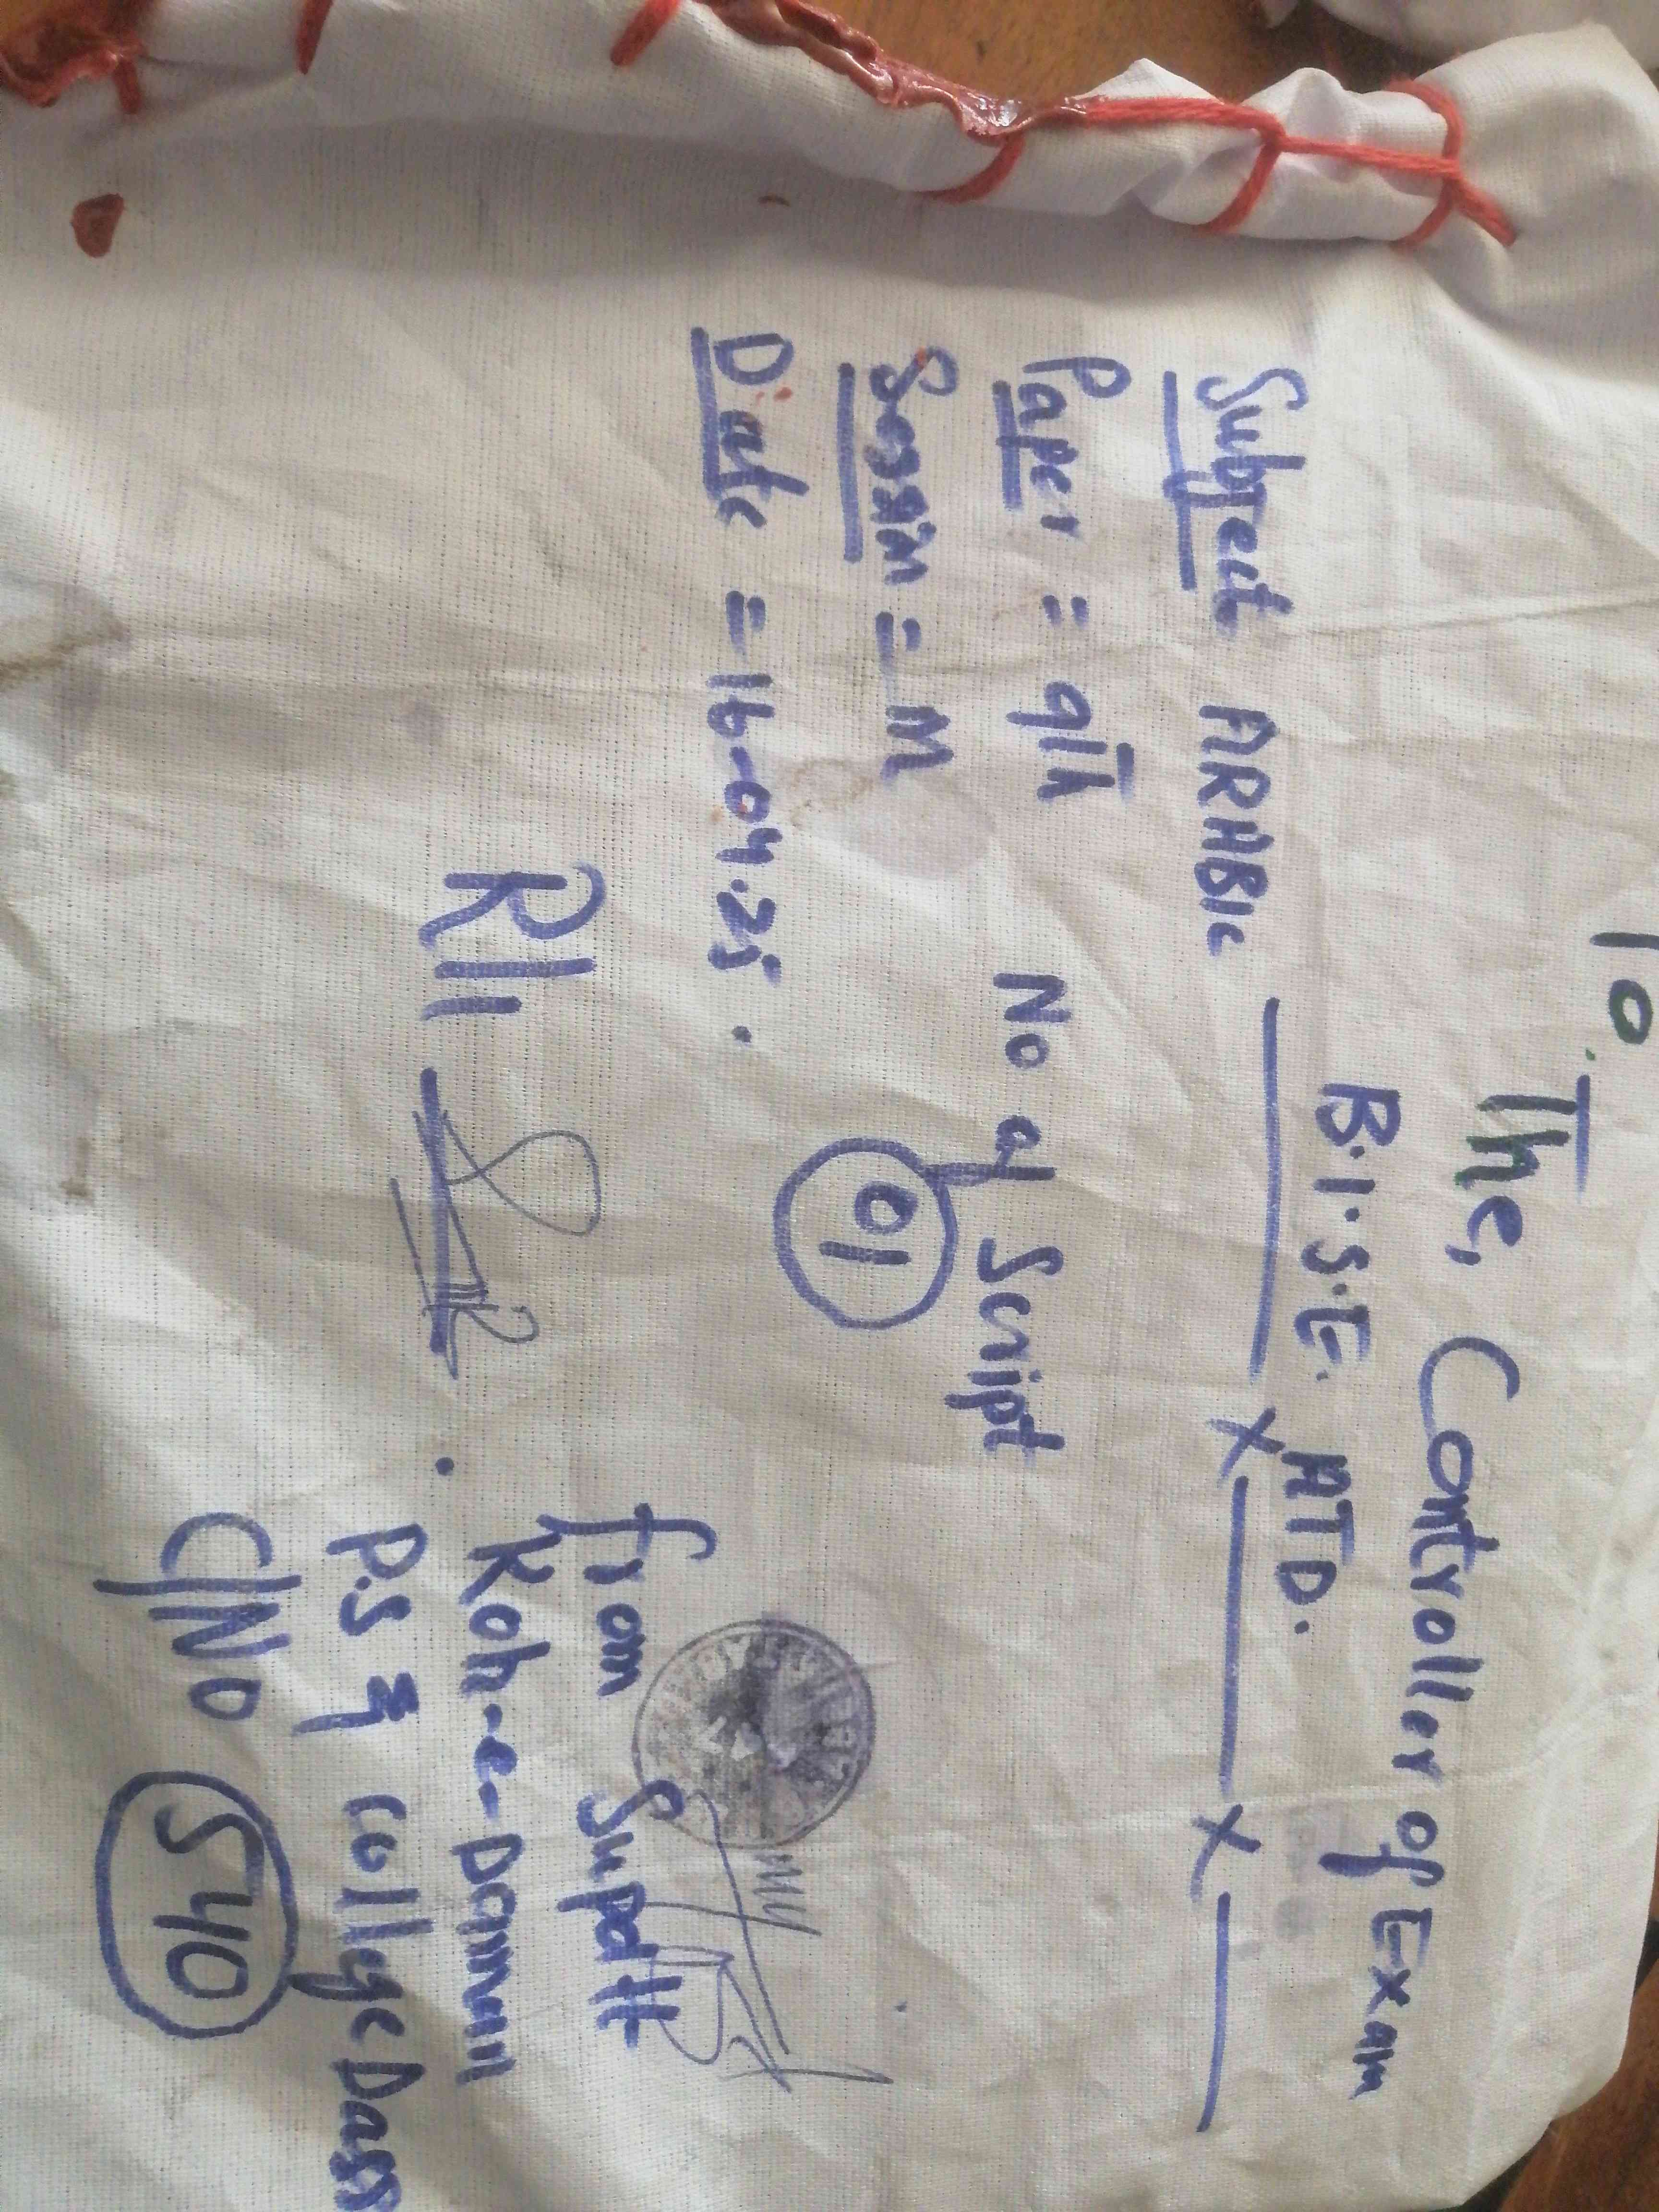 To.
The, Controller of Exam
B.I.S.E. MTD.
Subject ARABIC
Paper = 9th
No of Script
01
Session = M
Date = 16-04.25.
R11
from Supdtt
Koh-e-Damun
P.S & College Dass
C/No 540